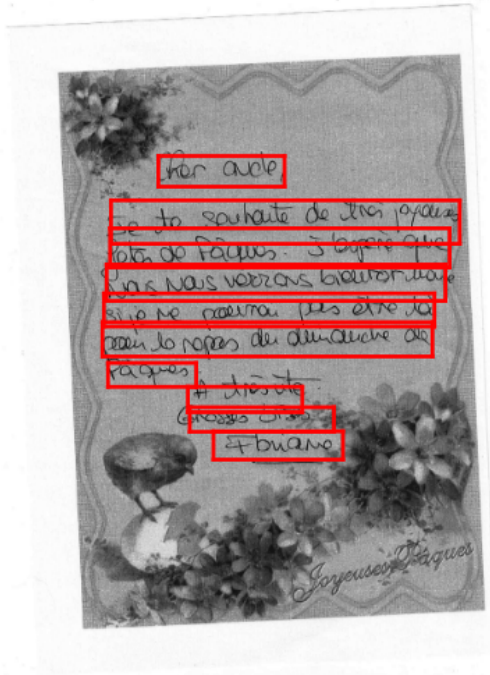 Cher oncle,
Je te souhaite de très joyeuses
fêtes de Pâques. J'espère que
nous nous verrons bientôt même
si je ne pourrai pas être là
pour le repas du dimanche de
Pâques
A très vite
Grosses bises
Joyeuses Pâques